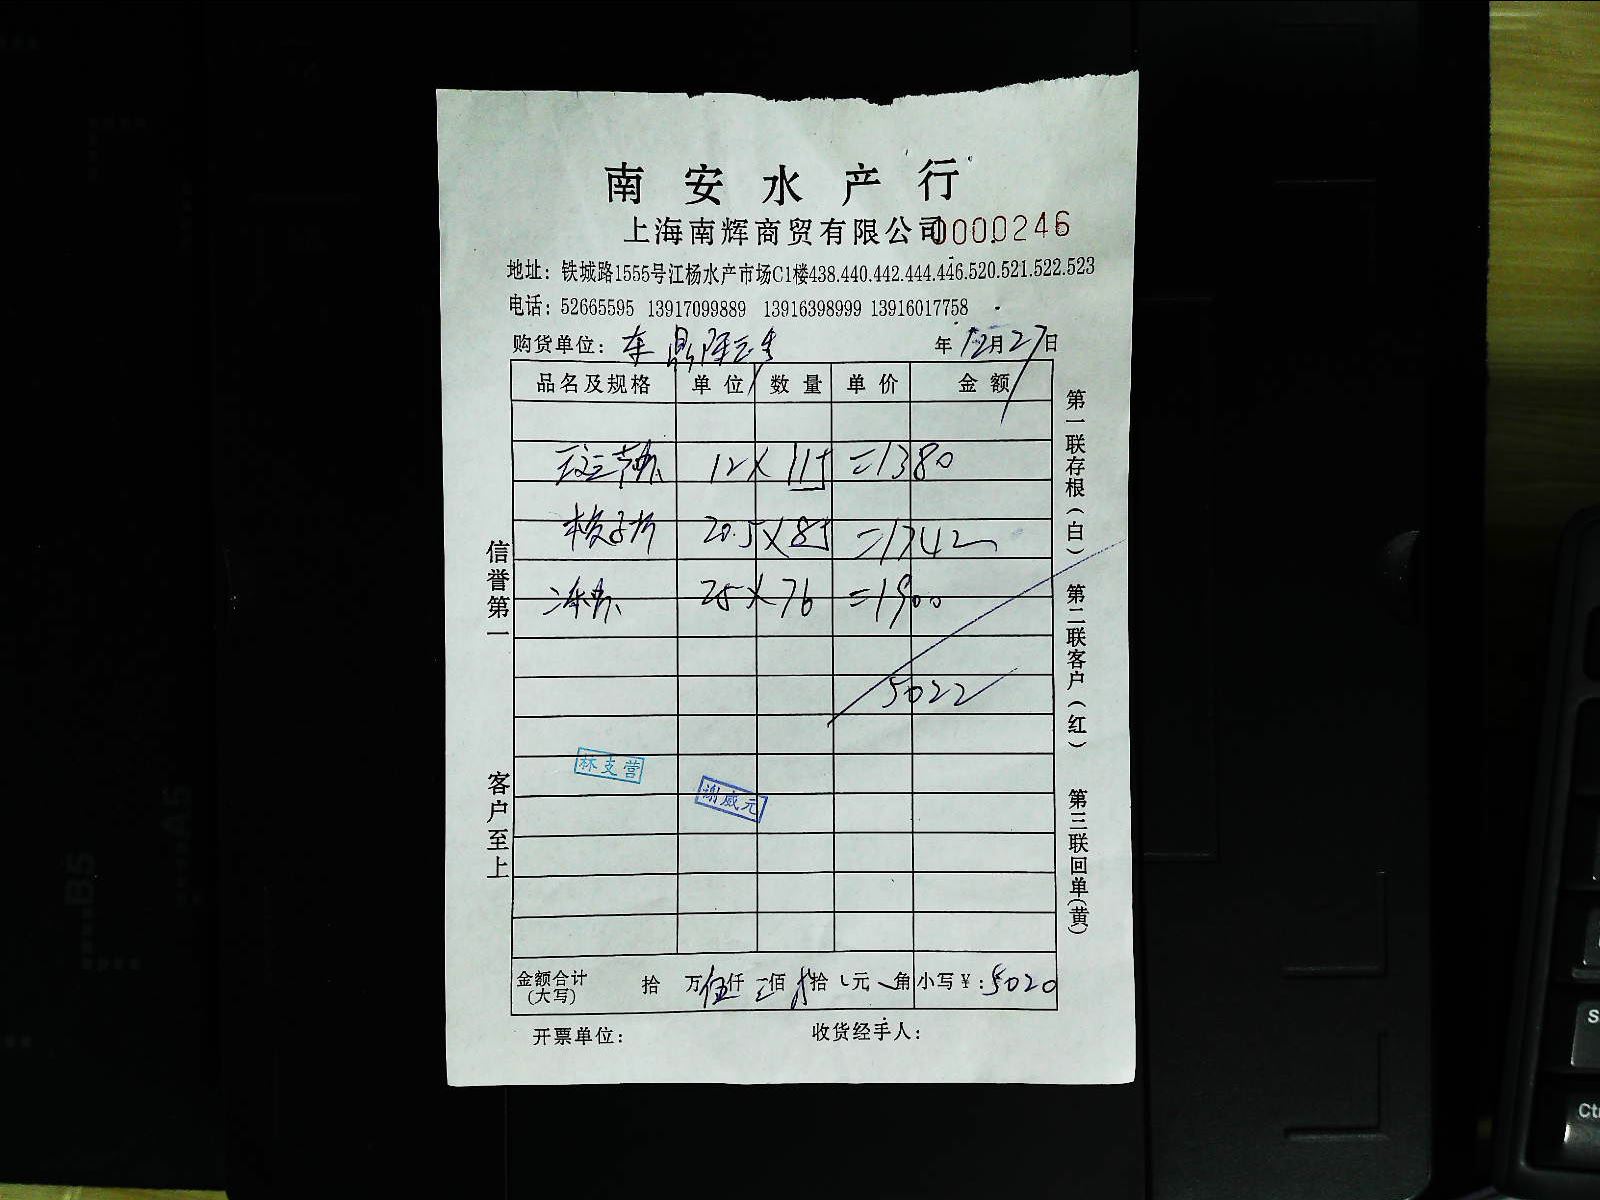 南安水产行
上海南辉商贸有限公司 0000246
地址：铁城路1555号江杨水产市场C1楼438.440.442.444.446.520.521.522.523
电话：52665595 13917099889 13916398999 13916017758
购货单位： 年 12月27日
品名及规格 单位 数量 单价 金额
12 X 115 =1380
20.5 X 85 =1742
冻虾 25 X 76 =1900
5022
林支营
谢威元
金额合计(大写) 拾 万 伍仟 佰 拾 元 角 小写￥:5020
开票单位： 收货经手人：
信誉第一
客户至上
第一联存根(白) 第二联客户(红) 第三联回单(黄)